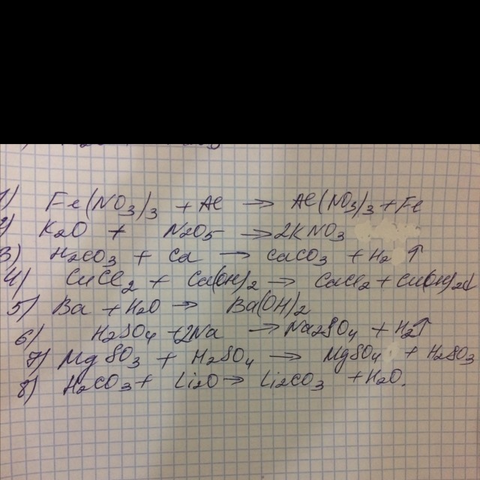 1) Fe(NO3)3 + Al → Al(NO3)3 + Fe
2) K2O + N2O5 → 2KNO3
3) H2CO3 + Ca → CaCO3 + H2↑
4) CuCl2 + Ca(OH)2 → CaCl2 + Cu(OH)2↓
5) Ba + H2O → Ba(OH)2
6) H2SO4 + 2Na → Na2SO4 + H2↑
7) MgSO3 + H2SO4 → MgSO4 + H2SO3
8) H2CO3 + Li2O → Li2CO3 + H2O.